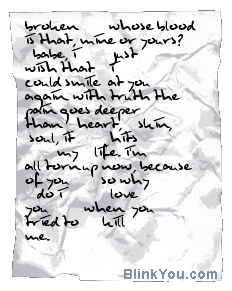 broken whose blood
is that, mine or yours?
babe, i just
wish that i
could smile at you
again with truth the
pain goes deeper
than heart, skin,
soul, it hits
my life. i'm
all torn up now because
of you so why
do i love
you when you
tried to kill
me.
BlinkYou.com